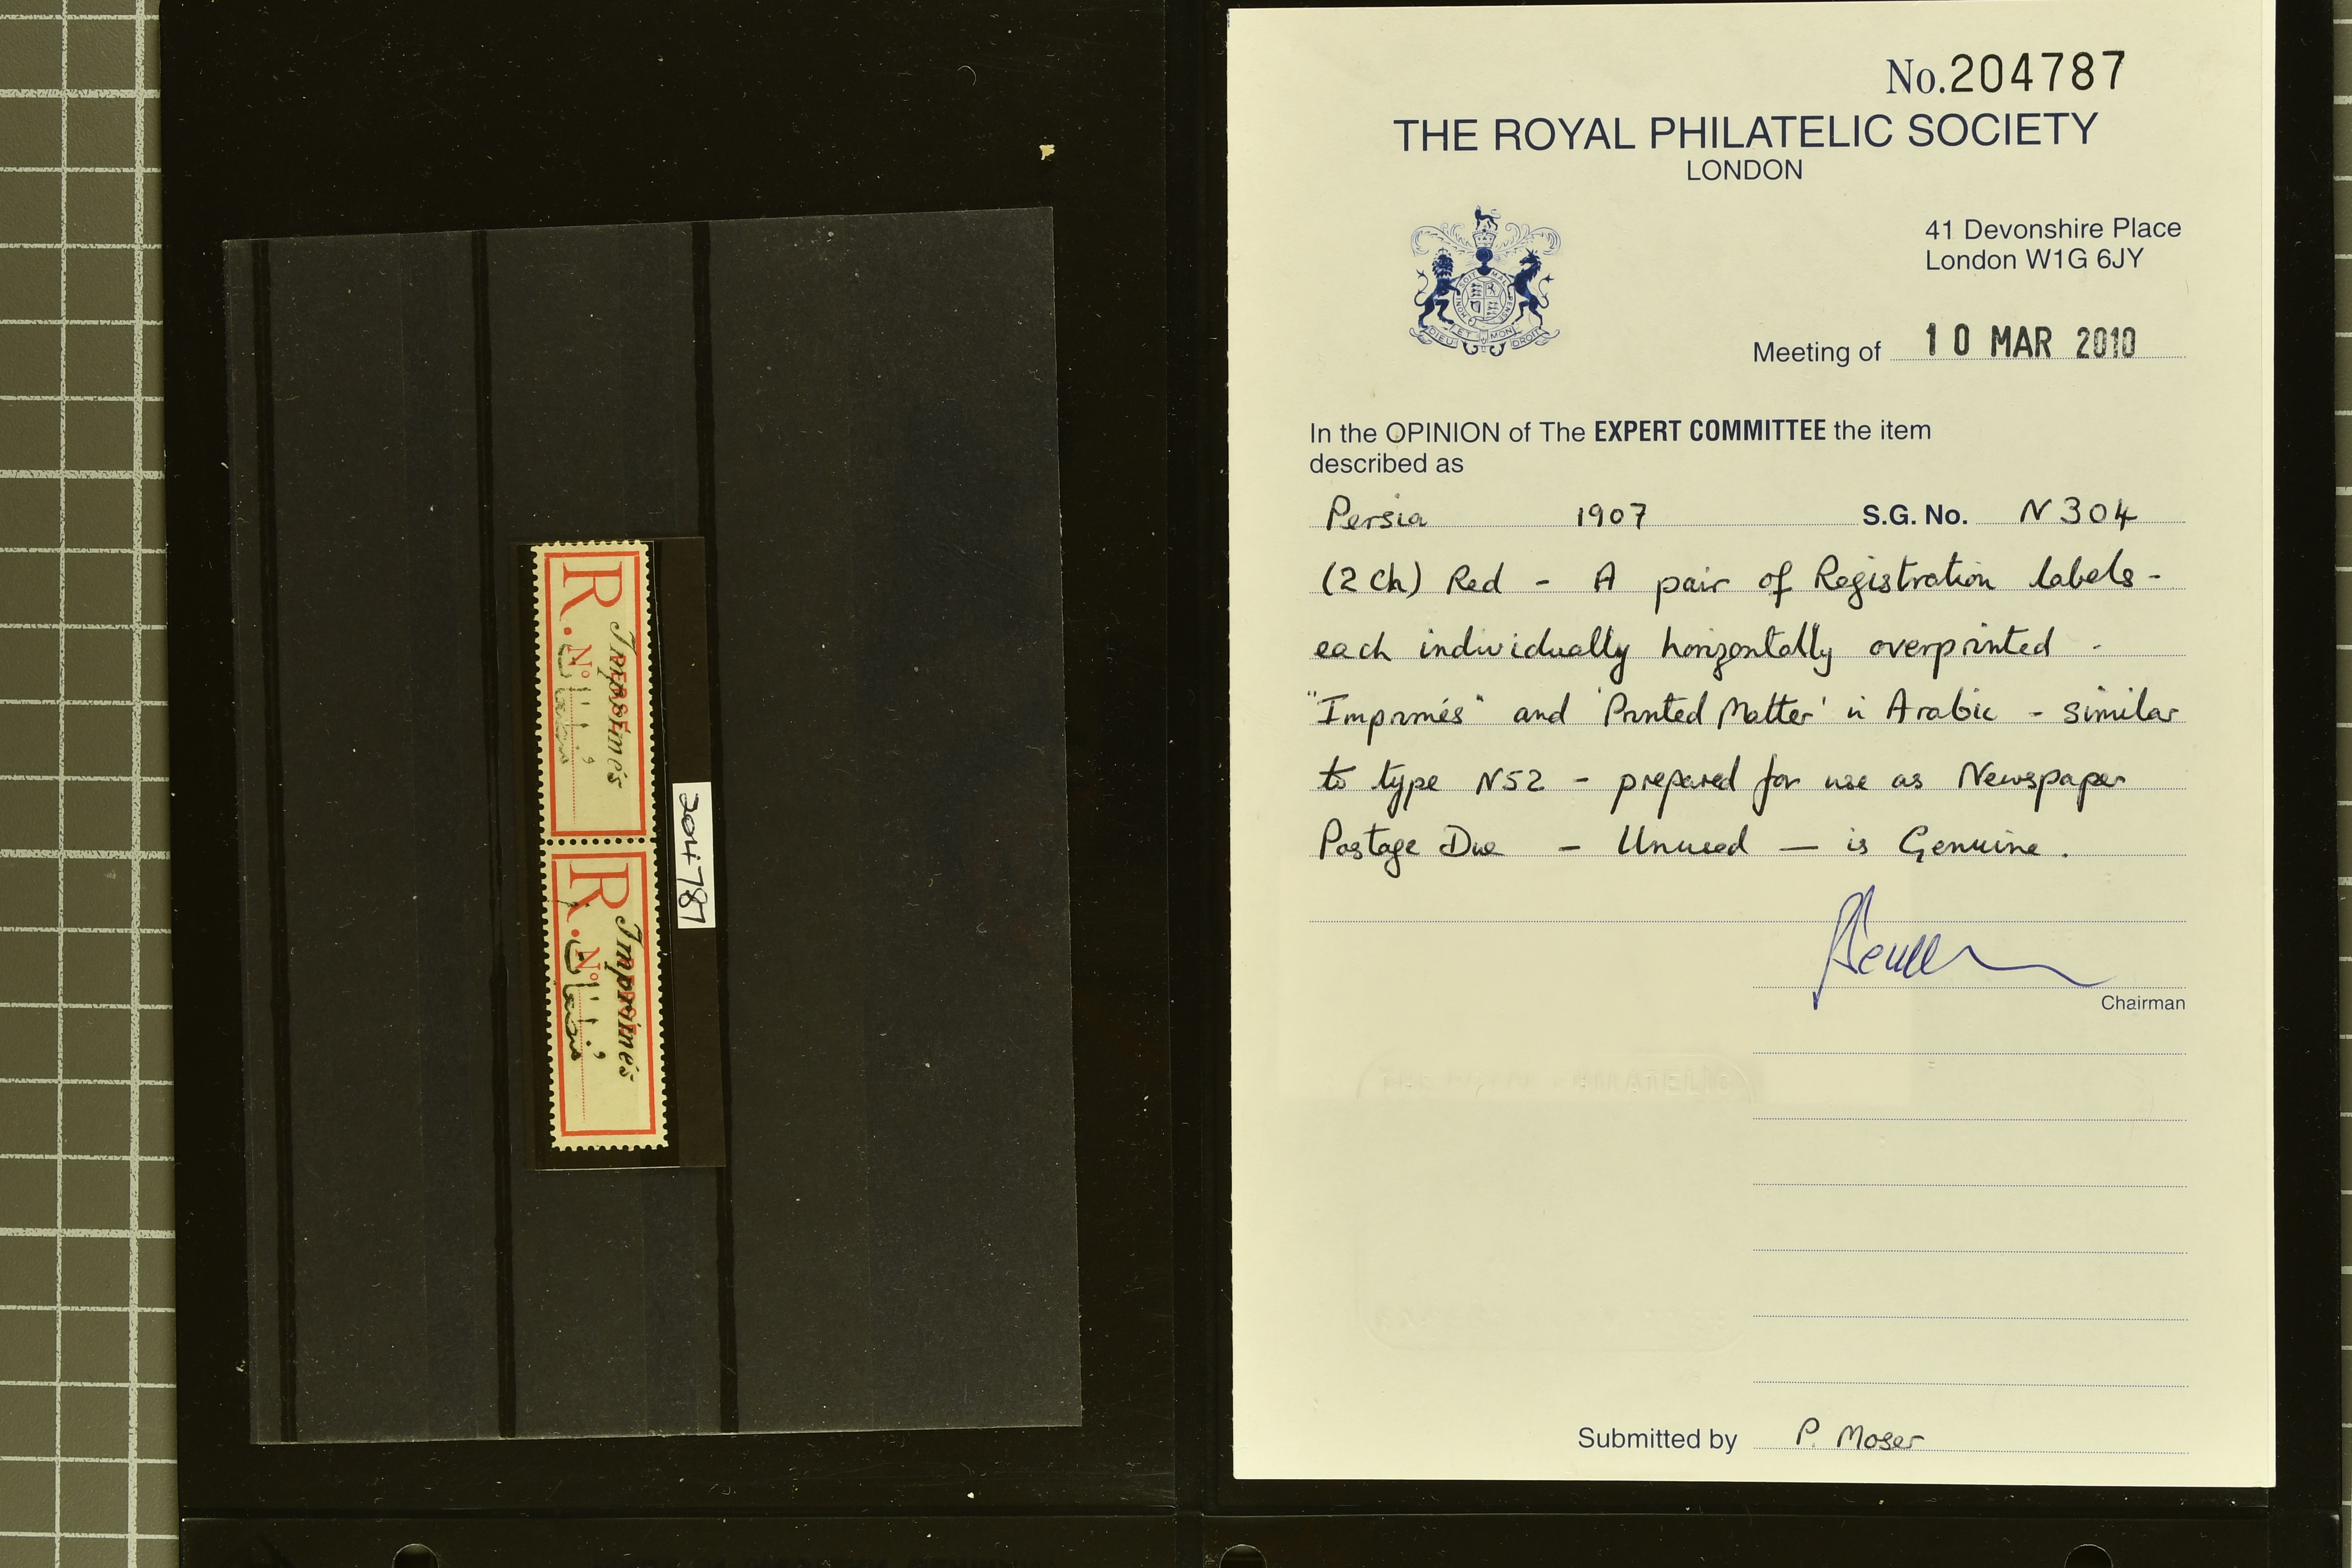 R. No
PERSE
Imprimés
مطبوعات
R. No
Imprimés
مطبوعات
204787
No.204787
THE ROYAL PHILATELIC SOCIETY
LONDON
41 Devonshire Place
London W1G 6JY
DIEU ET MON DROIT
Meeting of 10 MAR 2010
In the OPINION of The EXPERT COMMITTEE the item
described as
Persia 1907 S.G. No. N304
(2 Ch) Red - A pair of Registration labels -
each individually horizontally overprinted -
"Imprimés" and 'Printed Matter' in Arabic - similar
to type N52 - prepared for use as Newspaper
Postage Due - Unused - is Genuine.
Chairman
Submitted by P. Moser